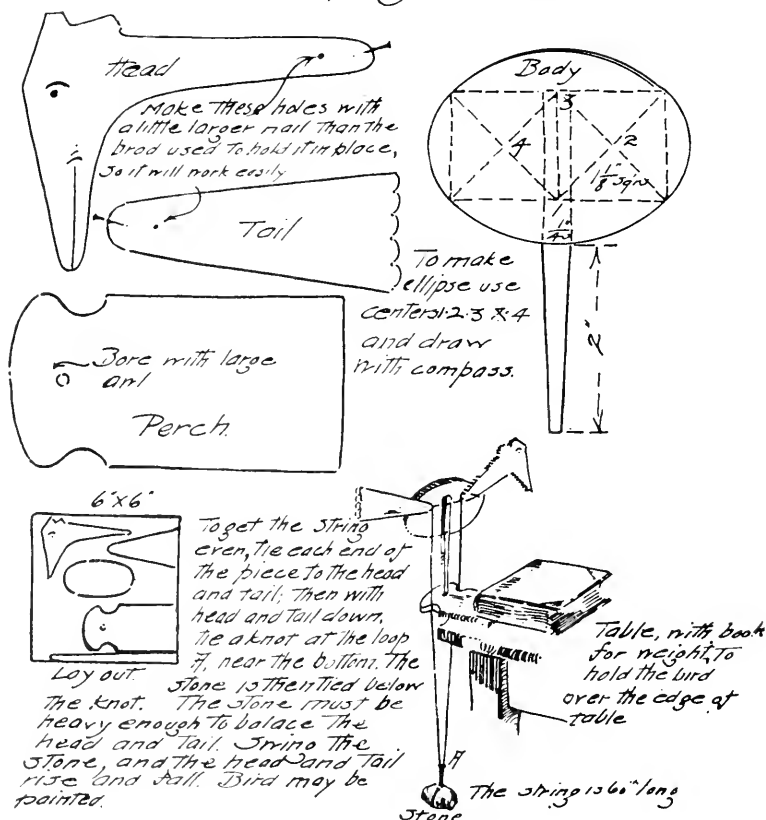 Head
Make These holes with
a little larger nail Than the
brad used To hold it in place,
so it will work easily
Tail
Body
3
4
2
1 1/8" sqrs
1
1/4"
2"
To make
ellipse use
centers 1·2·3 & 4
and draw
with compass.
Bore with large
awl
Perch.
6"x6"
Lay out
To get the string
even, tie each end of
the piece to the head
and tail; Then with
head and Tail down,
tie a knot at the loop
A, near the bottom. The
stone is then tied below
the knot. The stone must be
heavy enough to balace The
head and Tail. Swing The
stone, and the head and Tail
rise and fall. Bird may be
painted.
Table, with book
for weight, To
hold the bird
over the edge of
table
A
The string is 60" long
Stone